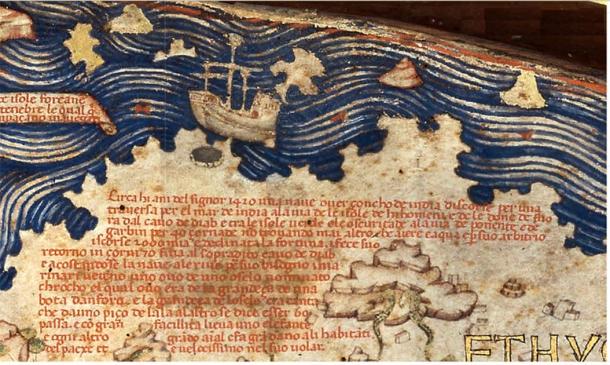 te isole foreane
tenebre le qual
Circa hi ani del signor 1420 una naue ouer çoncho de india discorse per una
trauersa per el mar de india a la uia de le isole de hi homeni e de le done de fuo
ra dal cauo de diab e tra le isole uerde e le oscuritade a la uia de ponente e de
garbin per 40 çornade nõ trouando mai altro che aiere e aqua e p suo arbitrio
iscorse 2000 mia e declinata la fortuna i fece suo
retorno in çorni 70 fina al sopradito cauo de diab
e acostandose la naue a le riue p suo bisogno i ma
rinari uedeno uno ouo de uno oselo nominato
chrocho el qual ouo era de la grandeça de una
bota danfora e la grandeça de loselo era tanta
che da uno piço de lala a laltro se dice esser 60
passa e cõ gran facilita lieua uno elefante
e ogni altro grãdo aial e fa gran dano a li habitãti
del paexe et e uelocissimo nel suo uolar
ETHYO